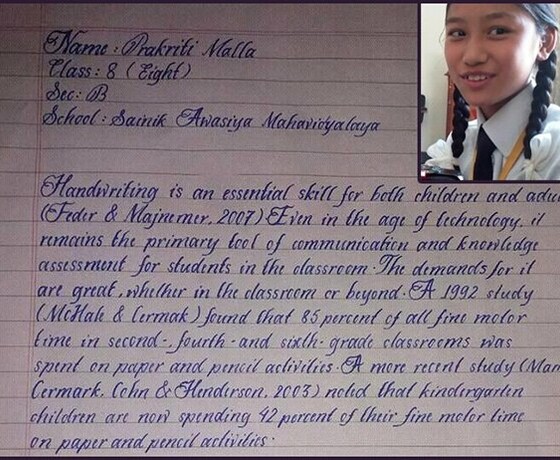 Name : Prakriti Malla
Class : 8 (Eight)
Sec : B
School : Sainik Awasiya Mahavidyalaya
Handwriting is an essential skill for both children and
(Feder & Majnemer, 2007) Even in the age of technology, it
remains the primary tool of communication and knowledge
assessment for students in the classroom. The demands for it
are great, whether in the classroom or beyond. A 1992 study
(McHale & Cermak) found that 85 percent of all fine motor
time in second-, fourth- and sixth-grade classrooms was
spent on paper and pencil activities. A more recent study (
Cermark, Cohn & Henderson, 2003) noted that kindergarten
children are now spending 42 percent of their fine motor time
on paper and pencil activities.